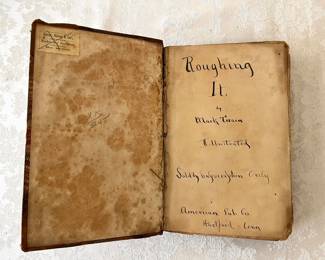 Roughing
It.
by
Mark Twain
Illustrated
Sold by Subscription Only
American Pub Co.
Hartford. Conn